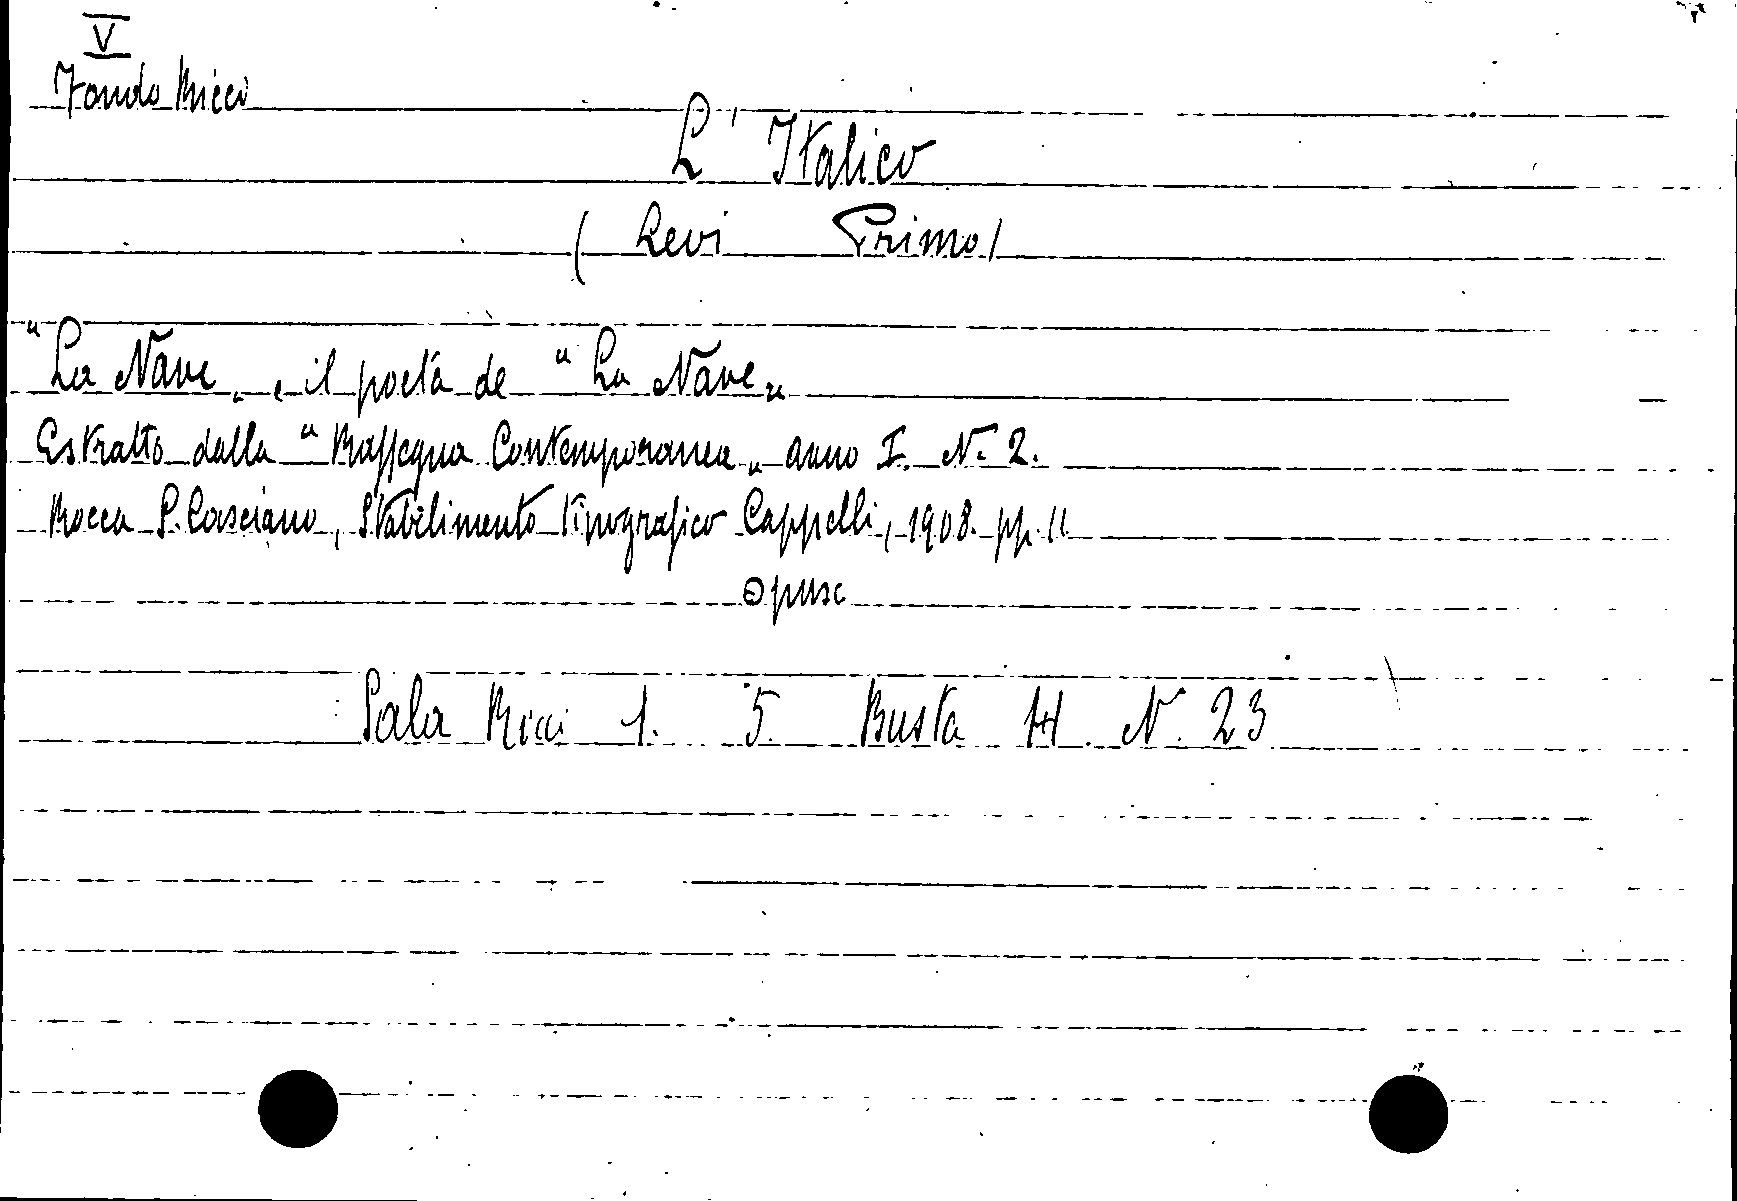 V
Fondo Ricci
L' Italico
( Levi Primo )
"La Nave„ e il poeta de "La Nave„
Estratto dalla "Rassegna Contemporanea„ anno I. N. 2.
Rocca S. Casciano, Stabilimento tipografico Cappelli, 1908. pp. 11
opusc
Sala Ricci 1. 5. Busta 14 N. 23